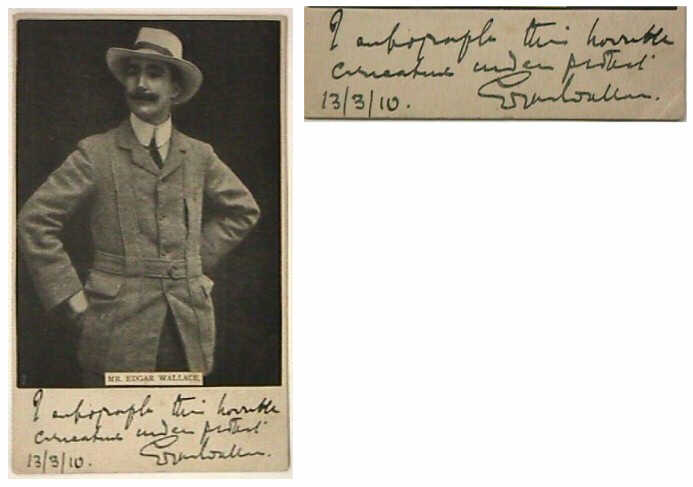 MR. EDGAR WALLACE.
I autograph this horrible
caricature under protest
13/3/10. Edgar Wallace.
I autograph this horrible
caricature under protest
13/3/10. Edgar Wallace.